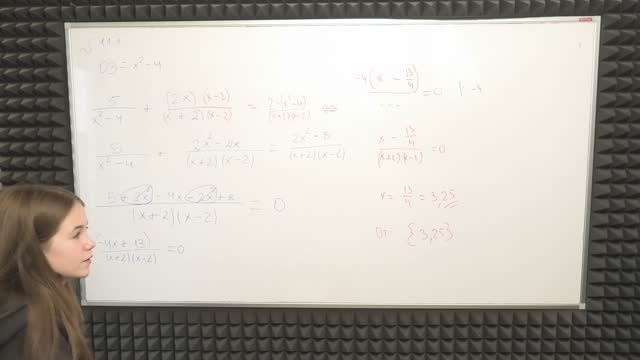 № 11.1
ОЗ = x² - 4
5/(x² - 4) + (2x)·(x-2)/((x+2)(x-2)) = 2·(x²-4)/((x+2)(x-2)) ⇔
5/(x² - 4) + (2x² - 4x)/((x+2)(x-2)) = (2x² - 8)/((x+2)(x-2))
(5 + 2x² - 4x - 2x² + 8)/((x+2)(x-2)) = 0
(-4x + 13)/((x+2)(x-2)) = 0
-4(x - 13/4)/... = 0 |: -4
(x - 13/4)/((x+2)(x-2)) = 0
x = 13/4 = 3,25
От {3,25}